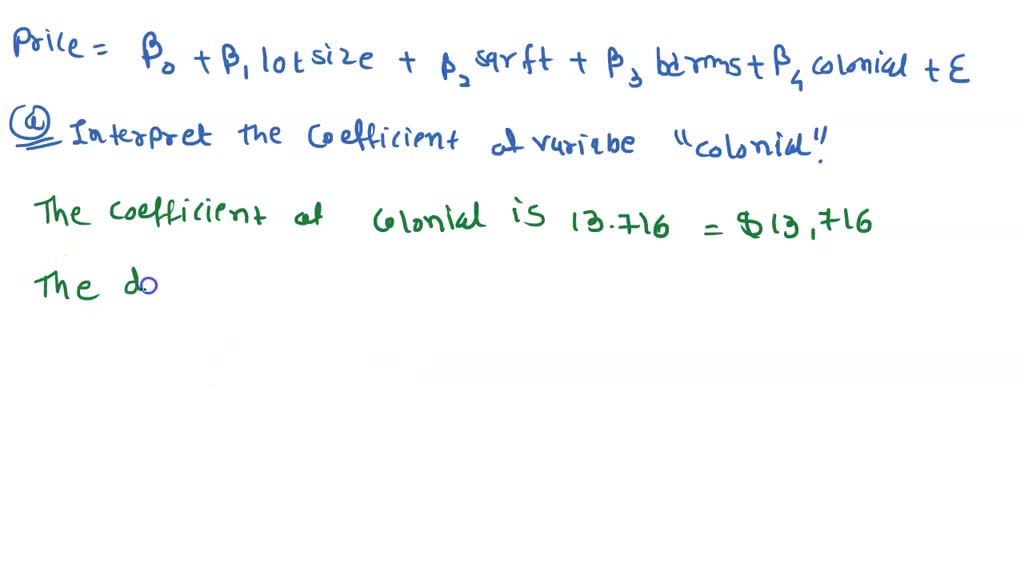 Price = β₀ + β₁ lot size + β₂ sqrft + β₃ bdrms + β₄ colonial + ε
(a) Interpret the coefficient at variabe "colonial".
The coefficient at colonial is 13.716 = $13,716
The do